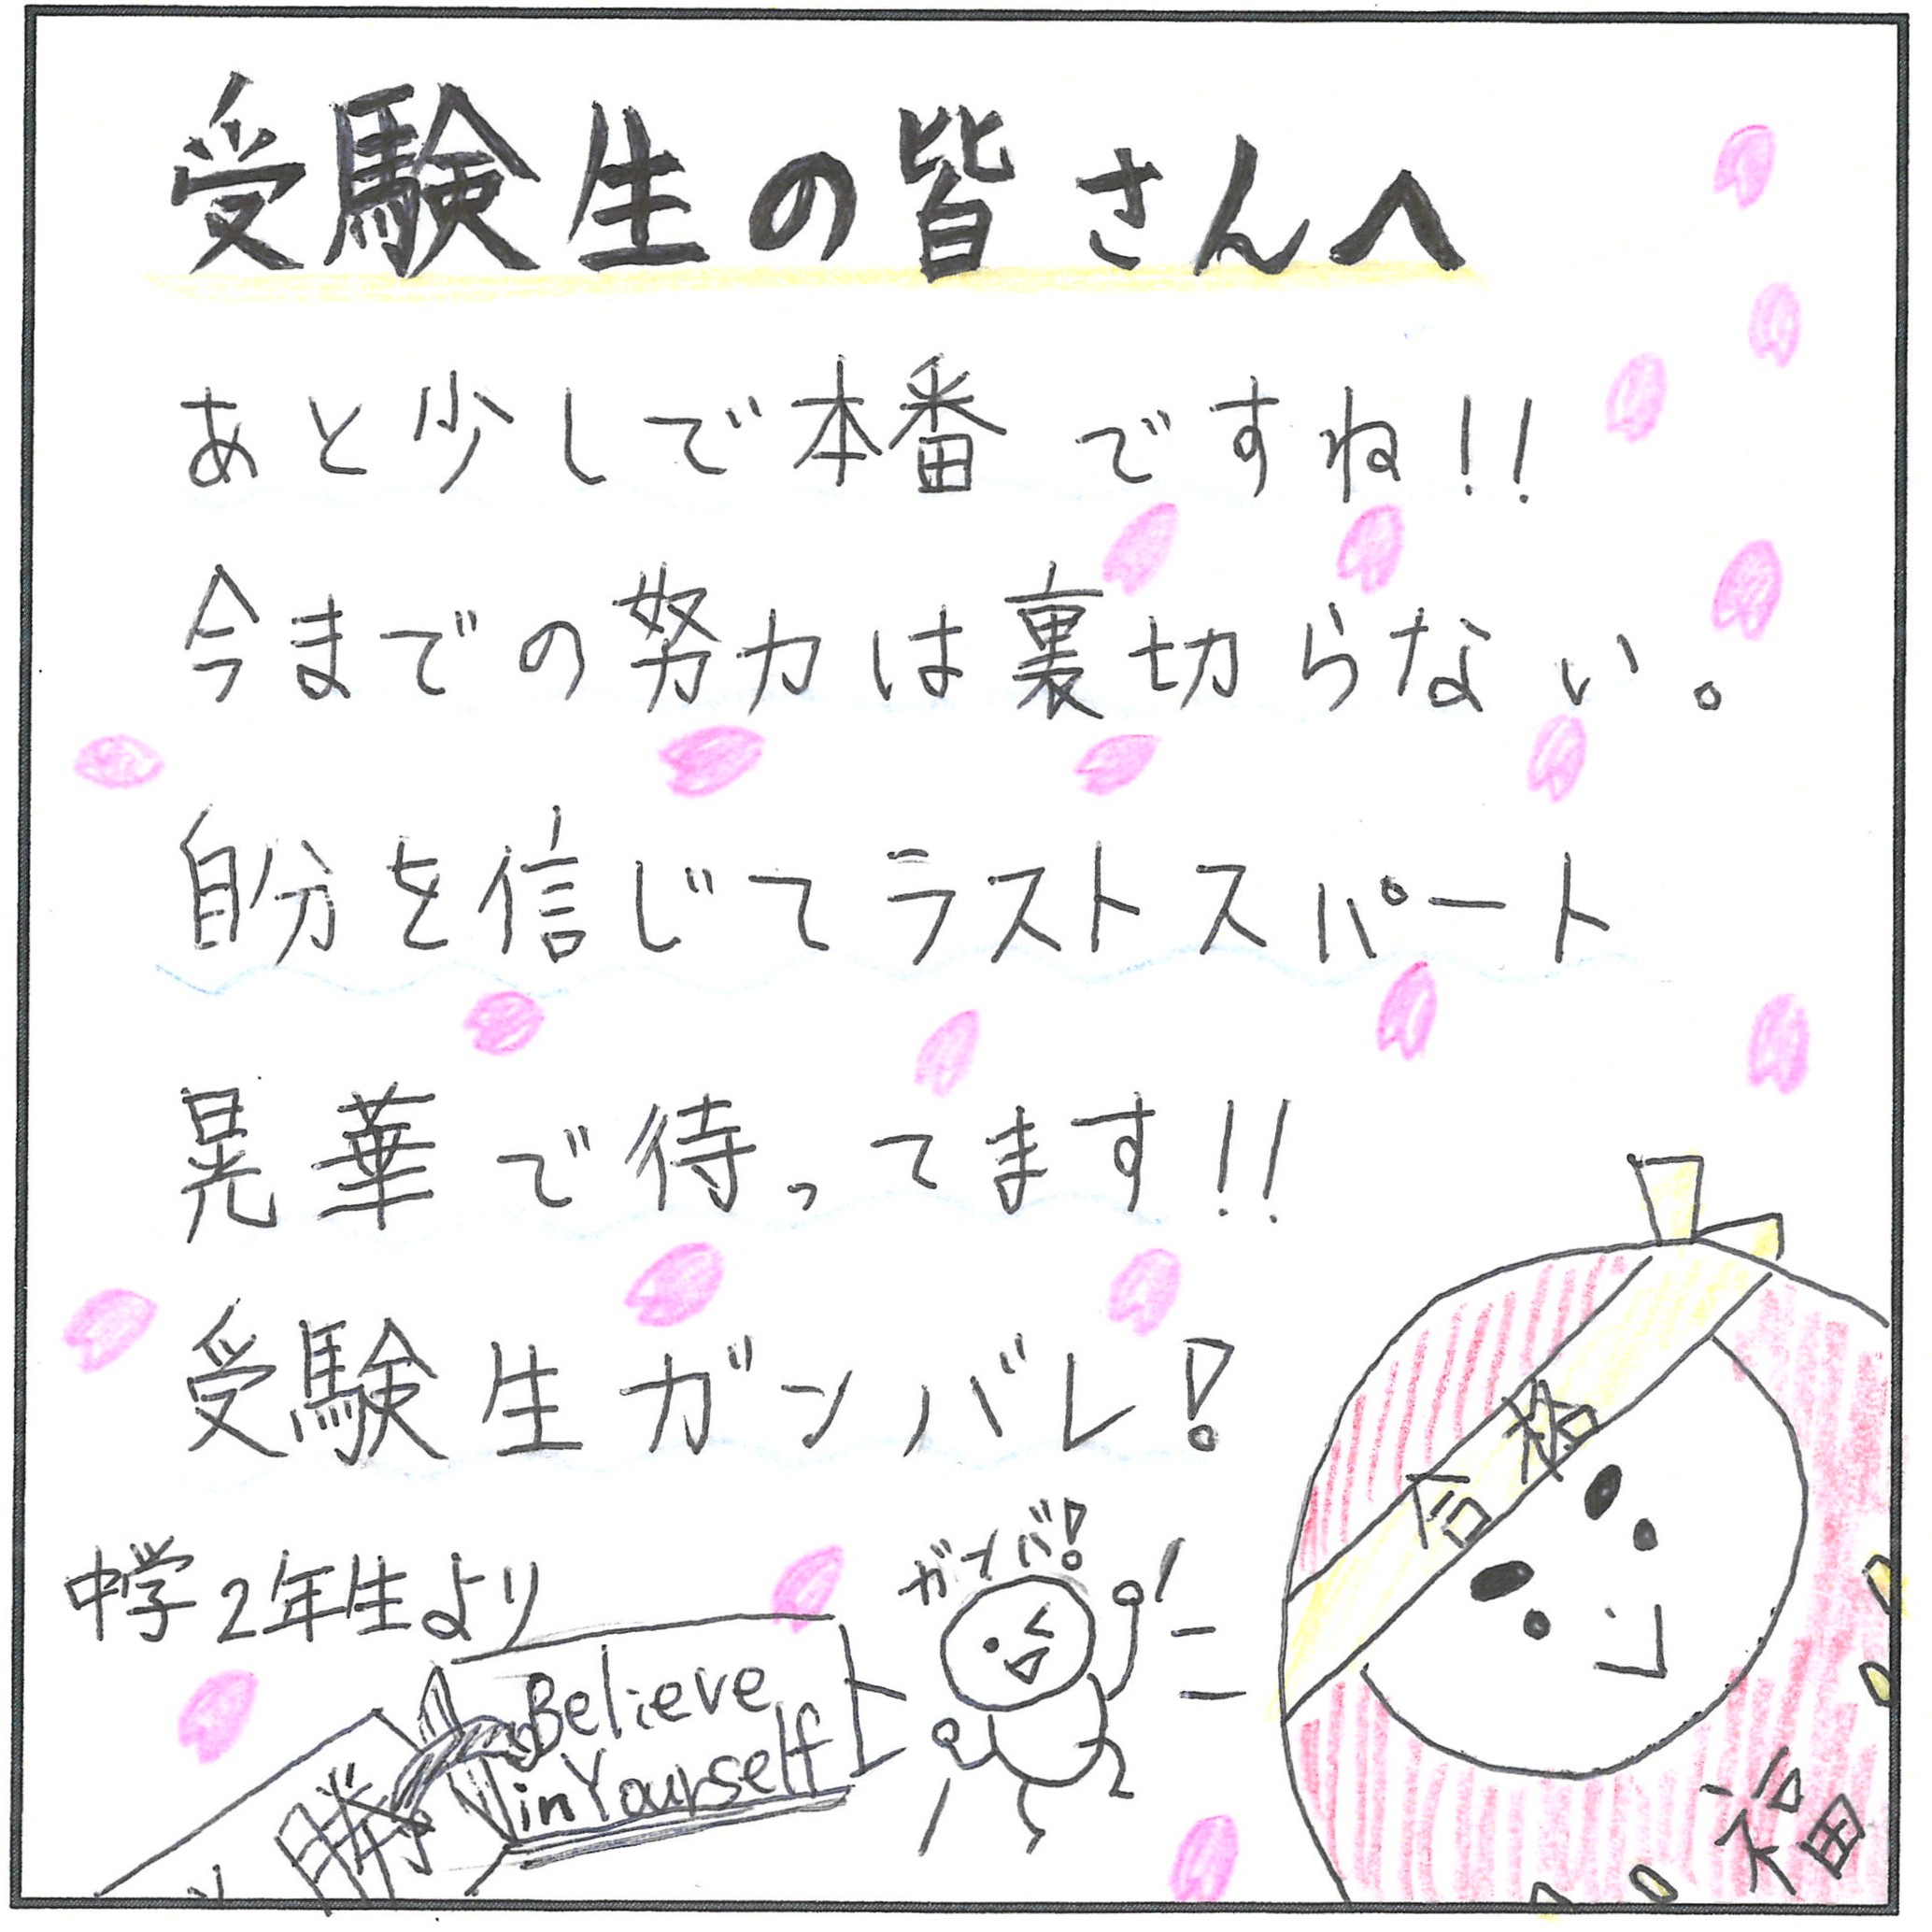 受験生の皆さんへ
あと少しで本番ですね!!
今までの努力は裏切らない。
自分を信じてラストスパート
晃華で待ってます!!
受験生ガンバレ!
中学2年生より
ガンバ!
合格
Believe
in Yourself
勝